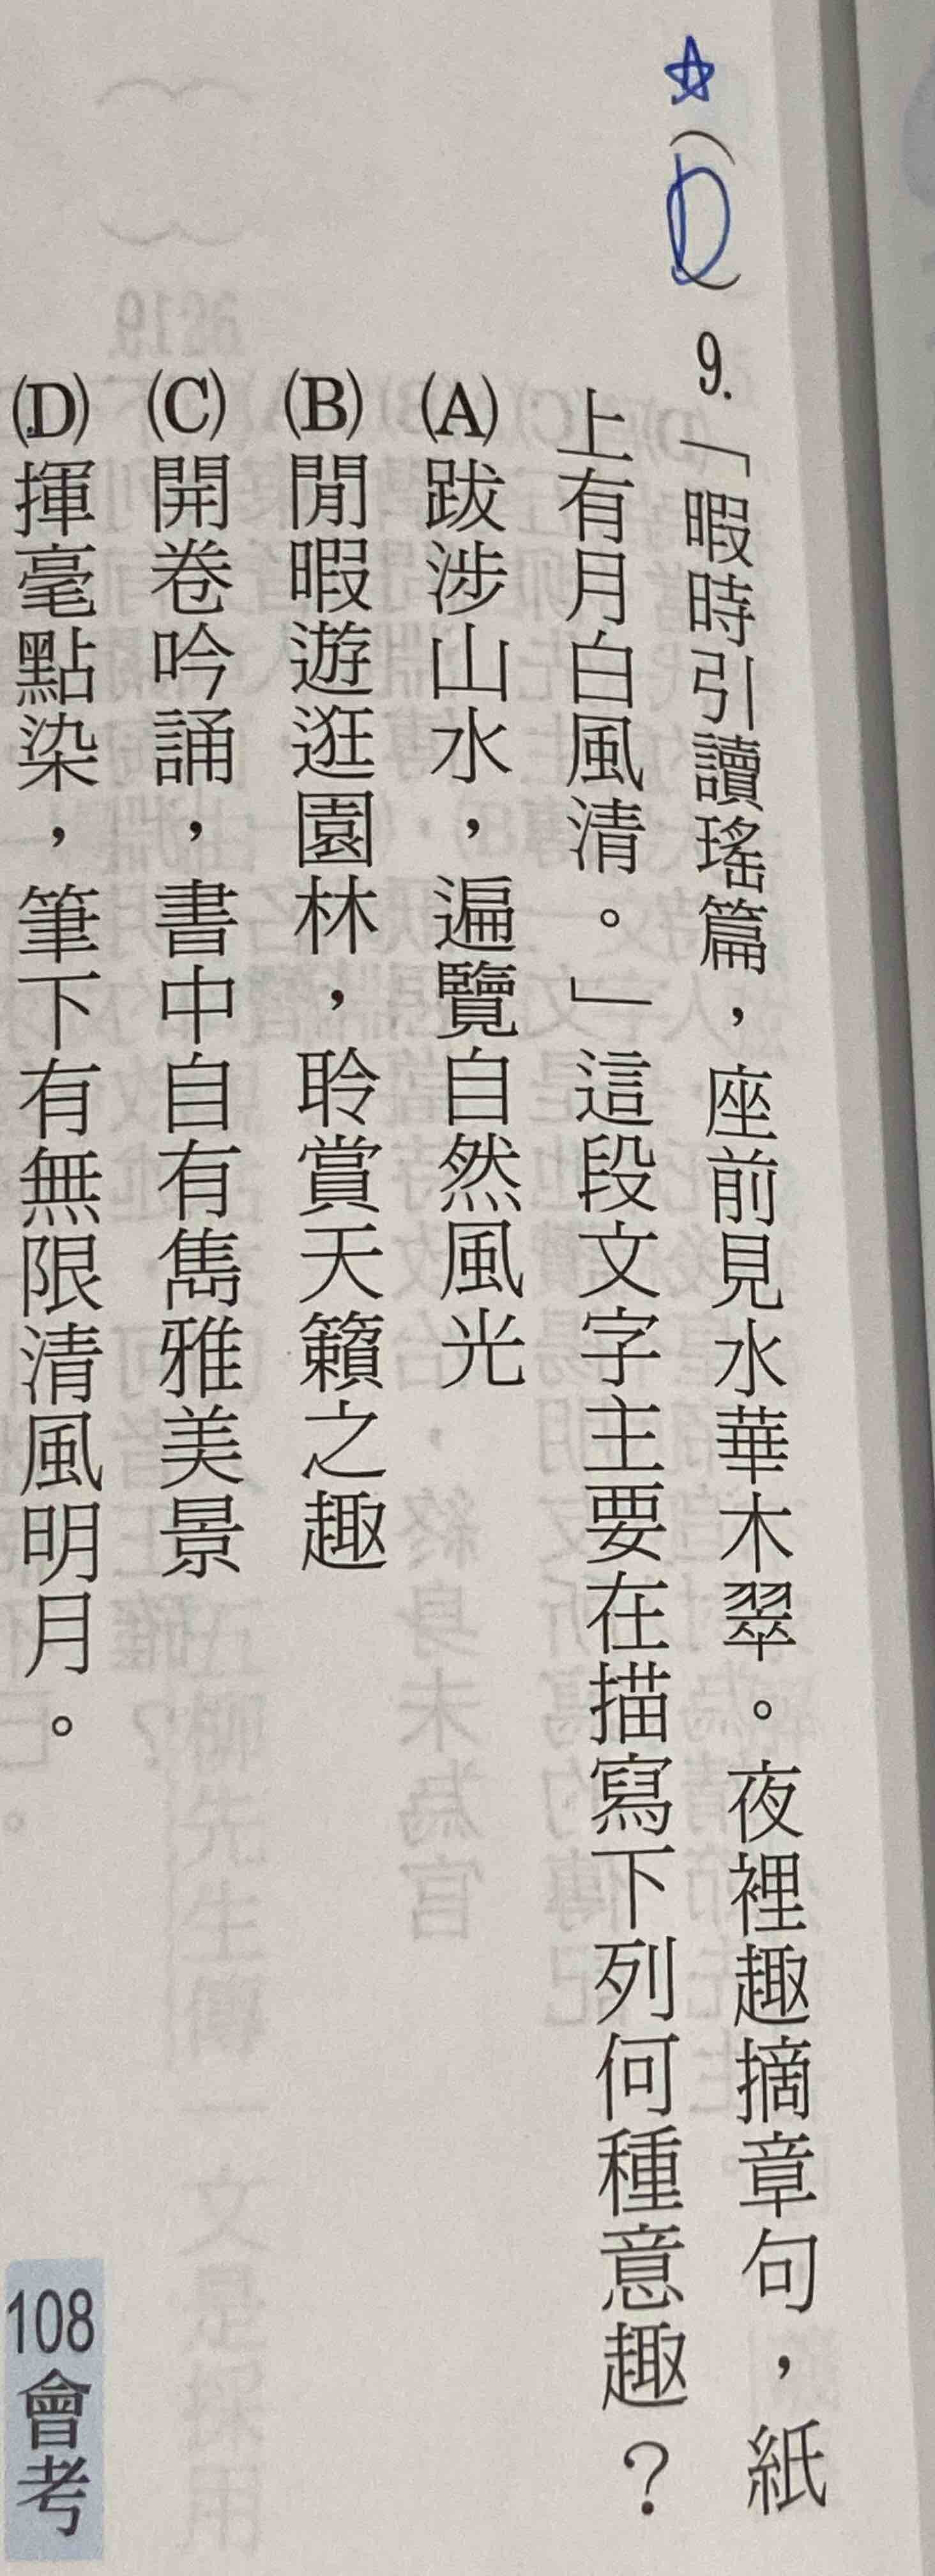 ☆(D)9.「暇時引讀瑤篇，座前見水華木翠。夜裡趣摘章句，紙
上有月白風清。」這段文字主要在描寫下列何種意趣？
(A)跋涉山水，遍覽自然風光
(B)閒暇遊逛園林，聆賞天籟之趣
(C)開卷吟誦，書中自有雋雅美景
(D)揮毫點染，筆下有無限清風明月。
108會考